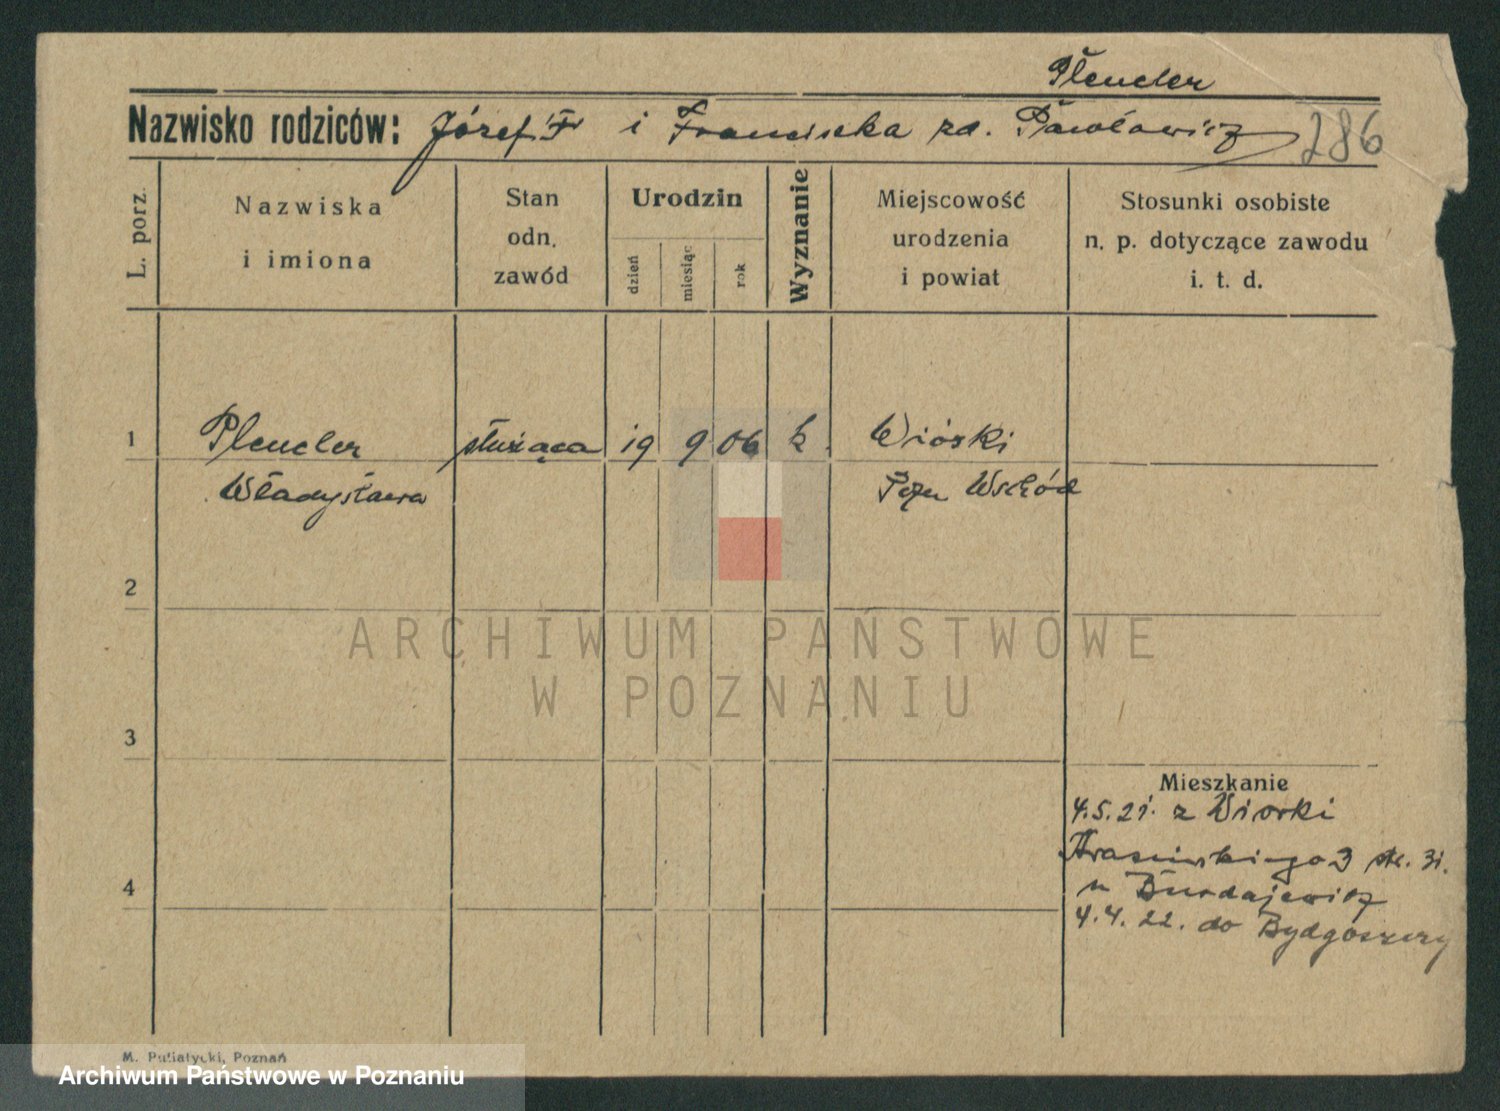 Plencler
Nazwisko rodziców: Józef F i Franciszka zd. Pawłowicz 286
L. porz.
Nazwiska
i imiona
Stan
odn.
zawód
Urodzin
dzień
miesiąc
rok
Wyznanie
Miejscowość
urodzenia
i powiat
Stosunki osobiste
n. p. dotyczące zawodu
i. t. d.
1 Plencler służąca 19 9 06 k. Wiórki
Władysława Pozn Wschód
2
ARCHIWUM PAŃSTWOWE
W POZNANIU
3
Mieszkanie
4.5.21. z Wiorki
3 31.
4 u Burdajewicz
4.4.22. do Bydgoszczy
M. Putiatycki, Poznań
Archiwum Państwowe w Poznaniu